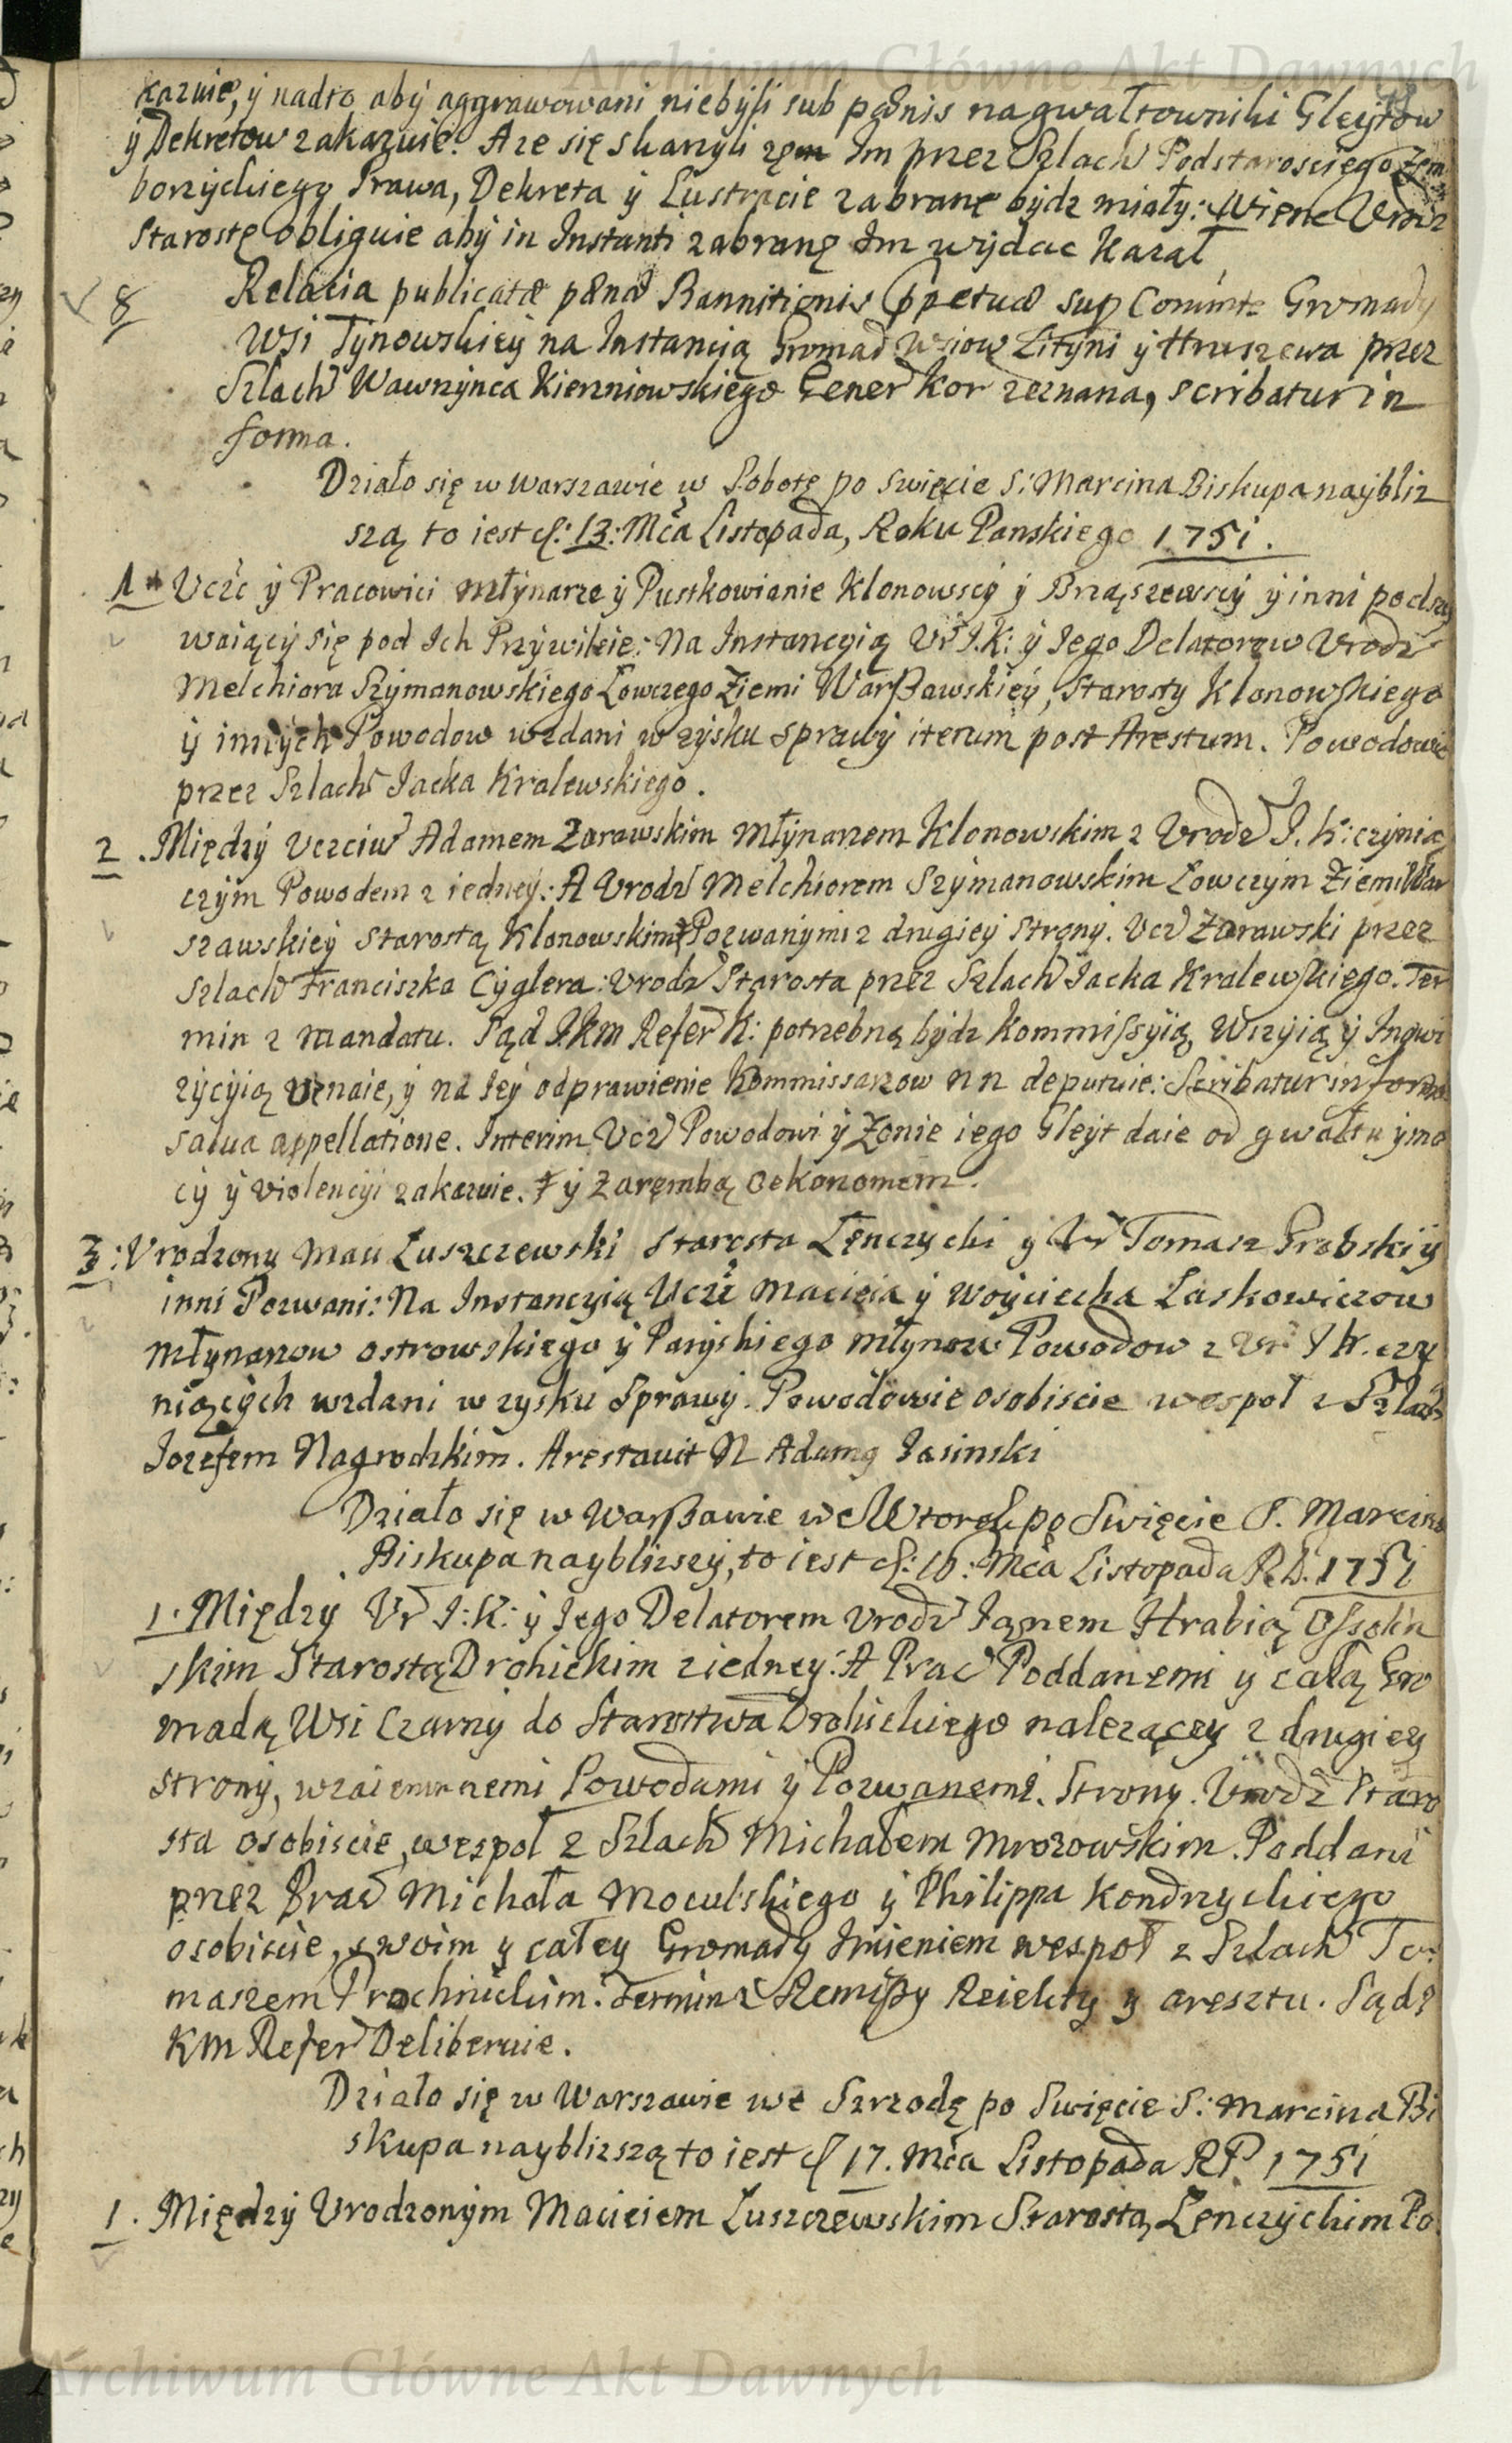 Archiwum Główne Akt Dawnych
kazuie, ÿ nadto abÿ aggrawowani niebÿli sub pœnis nagwałtowniki Gleÿtow
ÿ Dekretow zakazuie. A ze się skarzyli ze Im przez Szlach Podstarosciego
borzyckiego Prawa, Dekreta ÿ Lustracie zabrane bÿdz miały: Urodz
Starostę obliguie abÿ in Instanti zabranę Im wÿdac kazał
8 Relacia publicatæ pœnæ Bannitionis ppetuæ sup Gromady
Wsi Tÿnowskieÿ na Instancią Gromad Wsiow Litÿni ÿ Hruszewa przez
Szlach Wawrzÿnca Kierzniowskiego Gener Kor zeznana, scribatur in
forma.
Działo się w Warszawie w Sobotę po Swięcie S: Marcina Biskupa naÿbliz
szą to iest d: 13: Mca Listopada, Roku Panskiego 1751.
1 Uczc ÿ Pracowici Młÿnarze ÿ Pustkowianie Klonowscÿ ÿ Brząszewscÿ ÿ inni podszÿ
waiącÿ się pod Ich Przÿwileie: Na Instancyią Ur J.K: ÿ Jego Delatorow Urodz
Melchiora Szÿmanowskiego Łowczego Ziemi Warszawskieÿ, Starosty Klonowskiego
ÿ innÿch Powodow wzdani w zÿsku sprawÿ iterum post Arestum. Powodowie
przez Szlach Jacka Kralewskiego.
2. Międzÿ Uczciw Adamem Zarawskim Młÿnarzem Klonowskim z Urodz J. K: czÿnią
czÿm Powodem z iedneÿ: A Urodz Melchiorem Szÿmanowskim Łowczÿm Ziemi War
szawskieÿ Starostą Klonowskim ‡ Pozwanÿmi z drugieÿ Stronÿ. Ucz Zarawski przez
Szlach Franciszka Cÿglera: Urodz Starosta przez Szlach Jacka Kralewskiego. Ter
min z Mandatu. Sąd JKM Refer K: potrzebną bÿdz Kommissÿią, Wizÿią ÿ Inqwi
zÿcÿią uznaie, ÿ na Ieÿ odprawienie Kommissarzow NN deputuie: Scribatur in forma
salua appellatione. Interim Ucz Powodowi ÿ Zonie iego Gleÿt daie od gwałtu ÿ mo
cÿ ÿ violencÿi zakazuie. ‡ ÿ Zarembą Oekonomem.
3: Urodzony Mau Łuszczewski Starosta Łęnczycki y Ur Tomasz Grabski ÿ
inni Pozwani: Na Instancyią Uczc Macieia ÿ Woÿciecha Laskowiczow
Młynarzow ostrowskiego ÿ Parÿskiego Młynow Powodow z Ur J K. czy
niącÿch wzdani w zysku Sprawÿ. Powodowie osobiscie wespoł z Szlach
Jozefem Nagrodzkim. Arestauit N Adamg Jasinski
Działo się w Warszawie we Wtorek po Swięcie S. Marcina
Biskupa naÿblizszÿ, to iest d: 16: Mca Listopada R.P. 1751
1. Międzÿ Ur J: K: ÿ Jego Delatorem Urodz Janem Hrabią Ossolin
skim Starostą Drohickim z iedney: A Prac Poddanemi ÿ całą Gro
madą Wsi Czarny do Starostwa Drohickiego nalezącey z drugiey
stronÿ, wzaiemnemi Powodami ÿ Pozwanemi. Strony. Urodz Staro
sta osobiscie, wespoł z Szlach Michałem Mrozowskim. Poddani
przez Prac Michała Moculskiego ÿ Philippa Kondrzyckiego
osobiscie, swoim y całey Gromady Imieniem wespoł z Szlach To
maszem Prochnickim. Termin z Remissy Reiekty y aresztu. Sąd J
KM Refer Deliberuie.
Działo się w Warszawie we Szrzodę po Swięcie S: Marcina Bi
skupa nayblizszą to iest d 17. Mca Listopada RP 1751
1. Międzÿ Urodzonÿm Macieiem Łuszczewskim Starostą Łęnczÿckim Po
Archiwum Główne Akt Dawnych